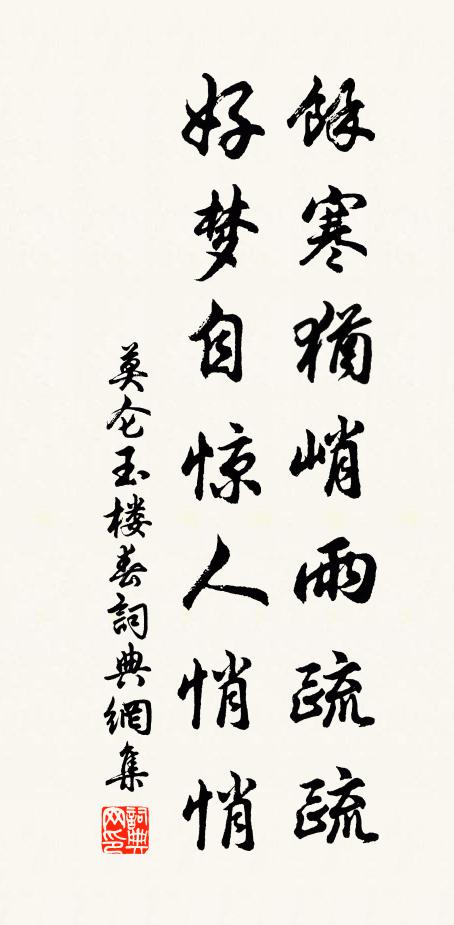 餘寒猶峭雨疏疏
好梦自惊人悄悄
莫仑玉楼春詞典網集
詞典网印